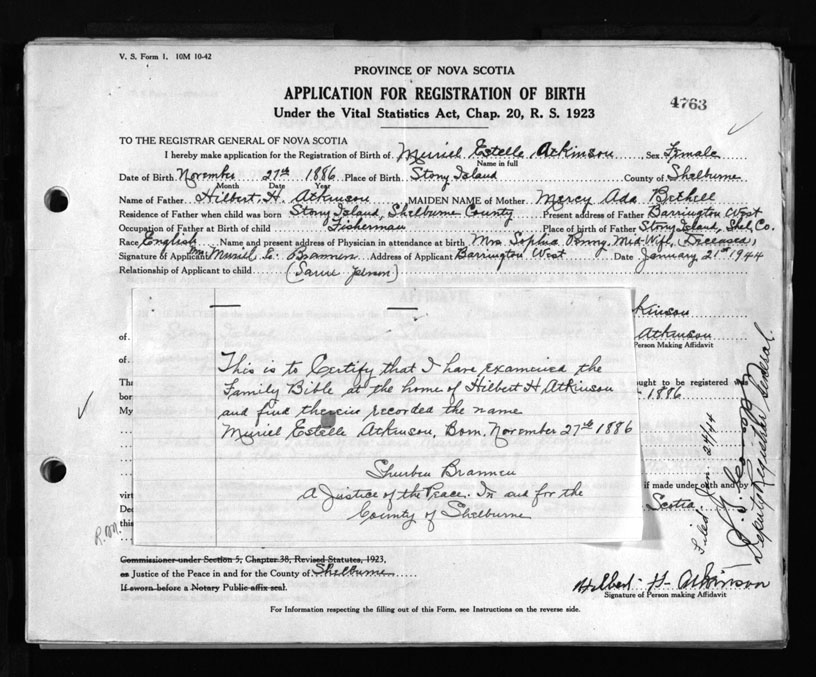 V. S. Form 1. 10M 10-42
PROVINCE OF NOVA SCOTIA
APPLICATION FOR REGISTRATION OF BIRTH
4763
Under the Vital Statistics Act, Chap. 20, R. S. 1923
TO THE REGISTRAR GENERAL OF NOVA SCOTIA
I hereby make application for the Registration of Birth of Muriel Estelle Atkinson, Sex Female
Name in full
Date of Birth November 27th 1886 Place of Birth Stony Island County of Shelburne
Month Date Year
Name of Father Hilbert H. Atkinson MAIDEN NAME of Mother Mercy Ada Bethell
Residence of Father when child was born Stony Island, Shelburne County Present address of Father Barrington West
Occupation of Father at Birth of child Fisherman Place of birth of Father Stony Island, Shel, Co.
Race English Name and present address of Physician in attendance at birth Mrs. Sophia Mid-Wife, (Deceased)
Signature of Applicant Mrs Muriel E. Brannen Address of Applicant Barrington West Date January 21st 1944
Relationship of Applicant to child (Same person)
kinson
of
Atkinson
Person Making Affidavit
of
This is to Certify that I have examined the
Family Bible at the home of Hilbert H Atkinson
Th
ought to be registered
born
1886
and find therein recorded the name
My
Muriel Estelle Atkinson, Born, November 27th 1886
Brannen
A Justice of the Peace. In and for the
County of Shelburne
if made under oath and by
virt
Scotia
Dec
this
R.M.
Filed Jan. 24/44
Deputy Registrar General.
Commissioner under Section 5, Chapter 38, Revised Statutes, 1923,
or Justice of the Peace in and for the County of Shelburne
If sworn before a Notary Public affix seal.
Hilbert H Atkinson
Signature of Person making Affidavit
For Information respecting the filling out of this Form, see Instructions on the reverse side.